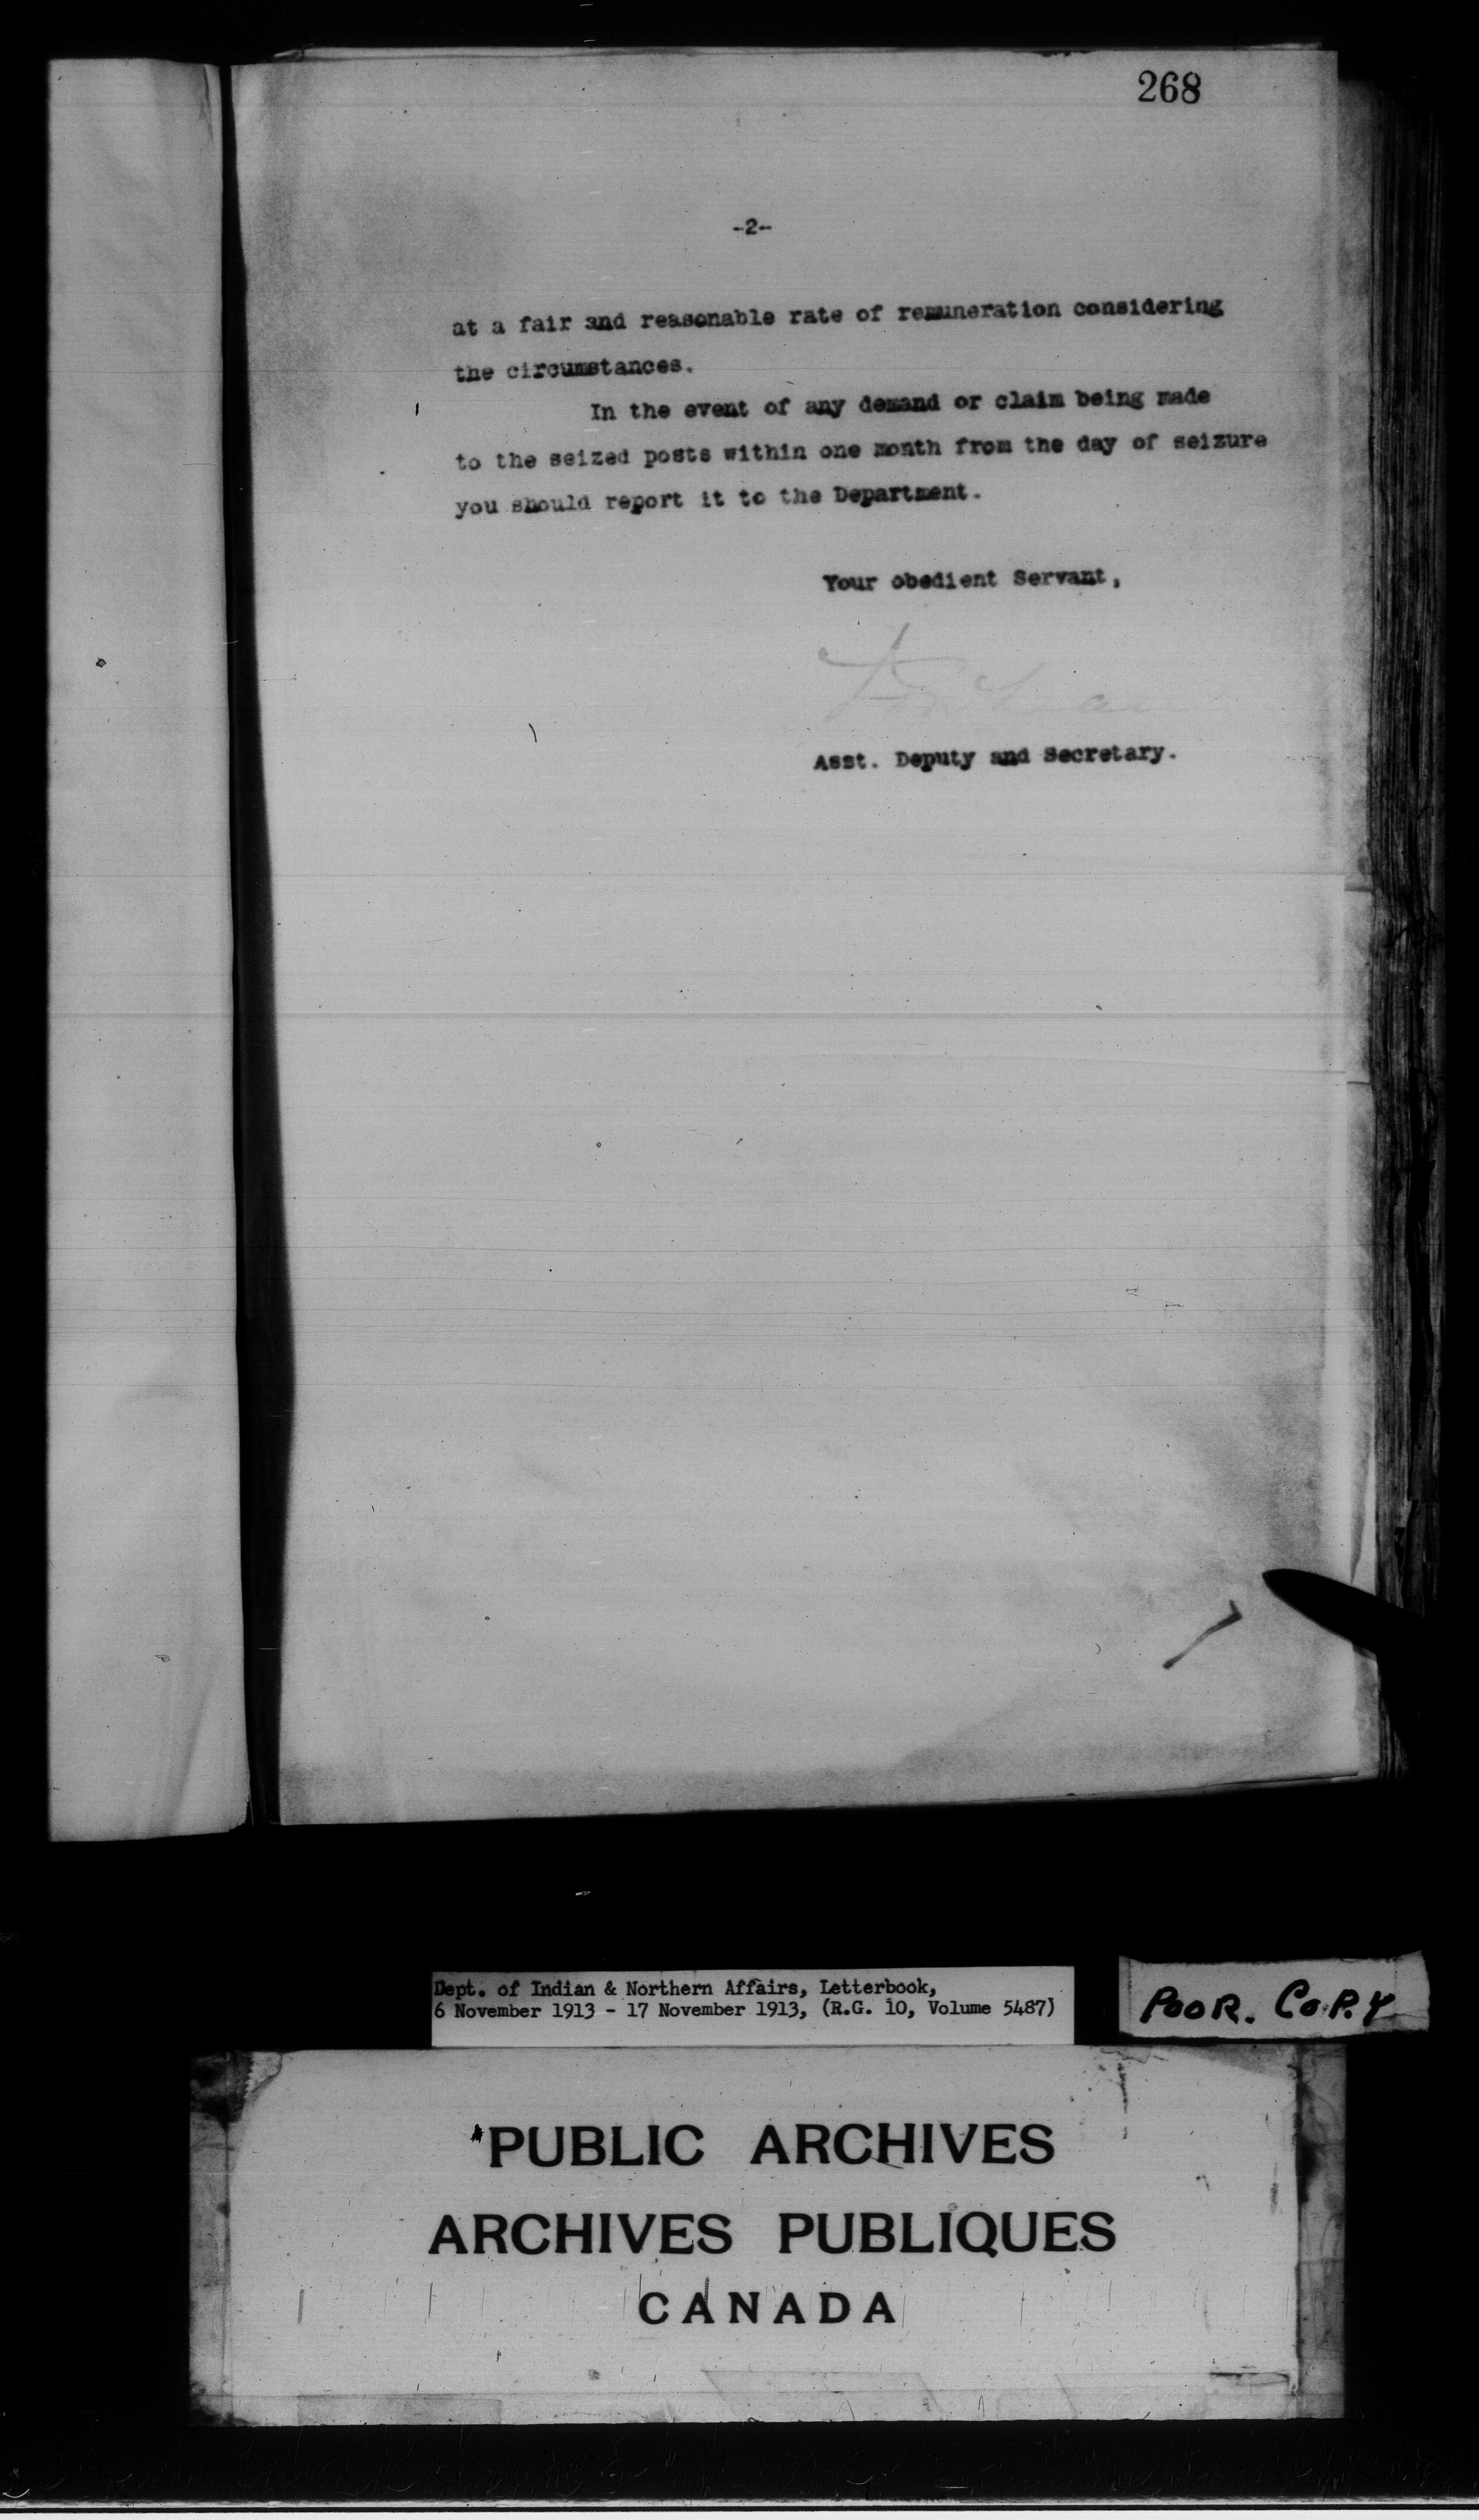 268
-2-
at a fair and reasonable rate of remuneration considering
the circumstances.
In the event of any demand or claim being made
to the seized posts within one month from the day of seizure
you should report it to the Department.
Your obedient Servant,
Asst. Deputy and Secretary.
Dept. of Indian & Northern Affairs, Letterbook,
6 November 1913 - 17 November 1913, (R.G. 10, Volume 5487)
POOR. COPY
PUBLIC ARCHIVES
ARCHIVES PUBLIQUES
CANADA